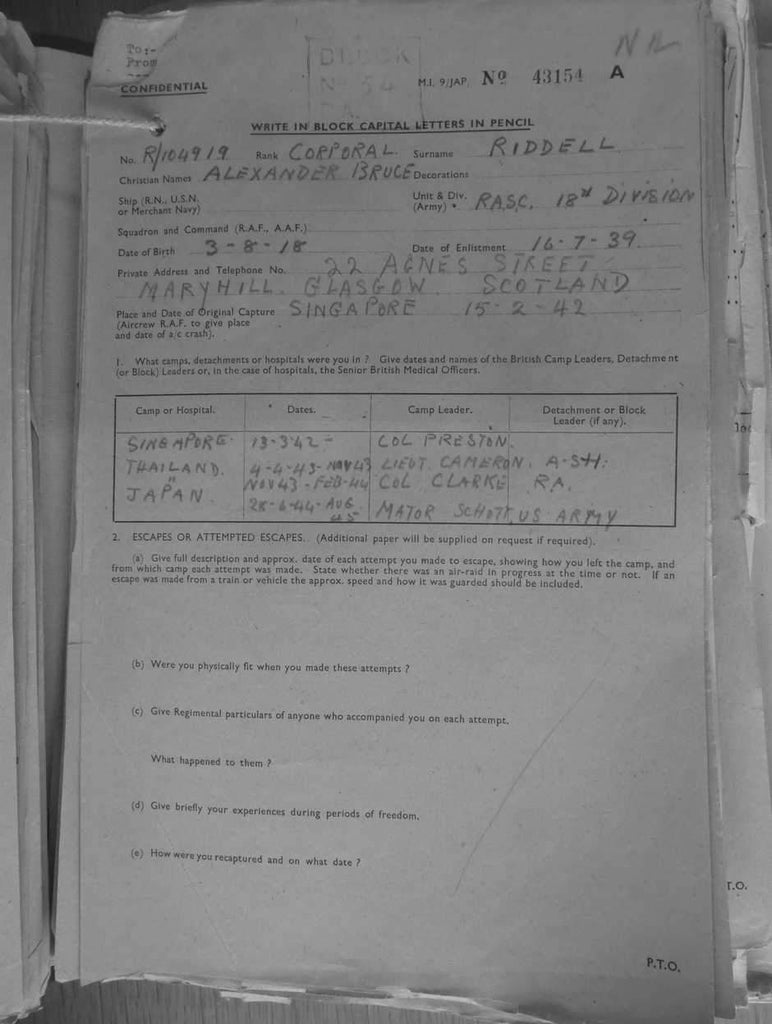 To:-
From
CONFIDENTIAL
BLOCK
Nº 54
NIL
M.I. 9/JAP. Nº 43154 A
WRITE IN BLOCK CAPITAL LETTERS IN PENCIL
No. R/104919 Rank CORPORAL. Surname RIDDELL.
Christian Names ALEXANDER BRUCE Decorations
Ship (R.N., U.S.N. or Merchant Navy) Unit & Div. (Army) • RASC. 18TH DIVISION
Squadron and Command (R.A.F., A.A.F.)
Date of Birth 3-8-18 Date of Enlistment 16-7-39.
Private Address and Telephone No. 22 AGNES STREET
MARYHILL. GLASGOW. SCOTLAND
Place and Date of Original Capture SINGAPORE 15-2-42
(Aircrew R.A.F. to give place
and date of a/c crash).
1. What camps, detachments or hospitals were you in ? Give dates and names of the British Camp Leaders, Detachment
(or Block) Leaders or, in the case of hospitals, the Senior British Medical Officers.
Camp or Hospital. Dates. Camp Leader. Detachment or Block Leader (if any).
SINGAPORE. 13-3-42- COL PRESTON.
THAILAND. 4-4-43-NOV43 LIEUT. CAMERON. A-SH.
" NOV43-FEB-44 COL CLARKE R.A.
JAPAN. 28-6-44-AUG 45 MAJOR SCHOTT, US ARMY
2. ESCAPES OR ATTEMPTED ESCAPES. (Additional paper will be supplied on request if required).
(a) Give full description and approx. date of each attempt you made to escape, showing how you left the camp, and
from which camp each attempt was made. State whether there was an air-raid in progress at the time or not. If an
escape was made from a train or vehicle the approx. speed and how it was guarded should be included.
(b) Were you physically fit when you made these attempts ?
(c) Give Regimental particulars of anyone who accompanied you on each attempt.
What happened to them ?
(d) Give briefly your experiences during periods of freedom.
(e) How were you recaptured and on what date ?
P.T.O.
T.O.